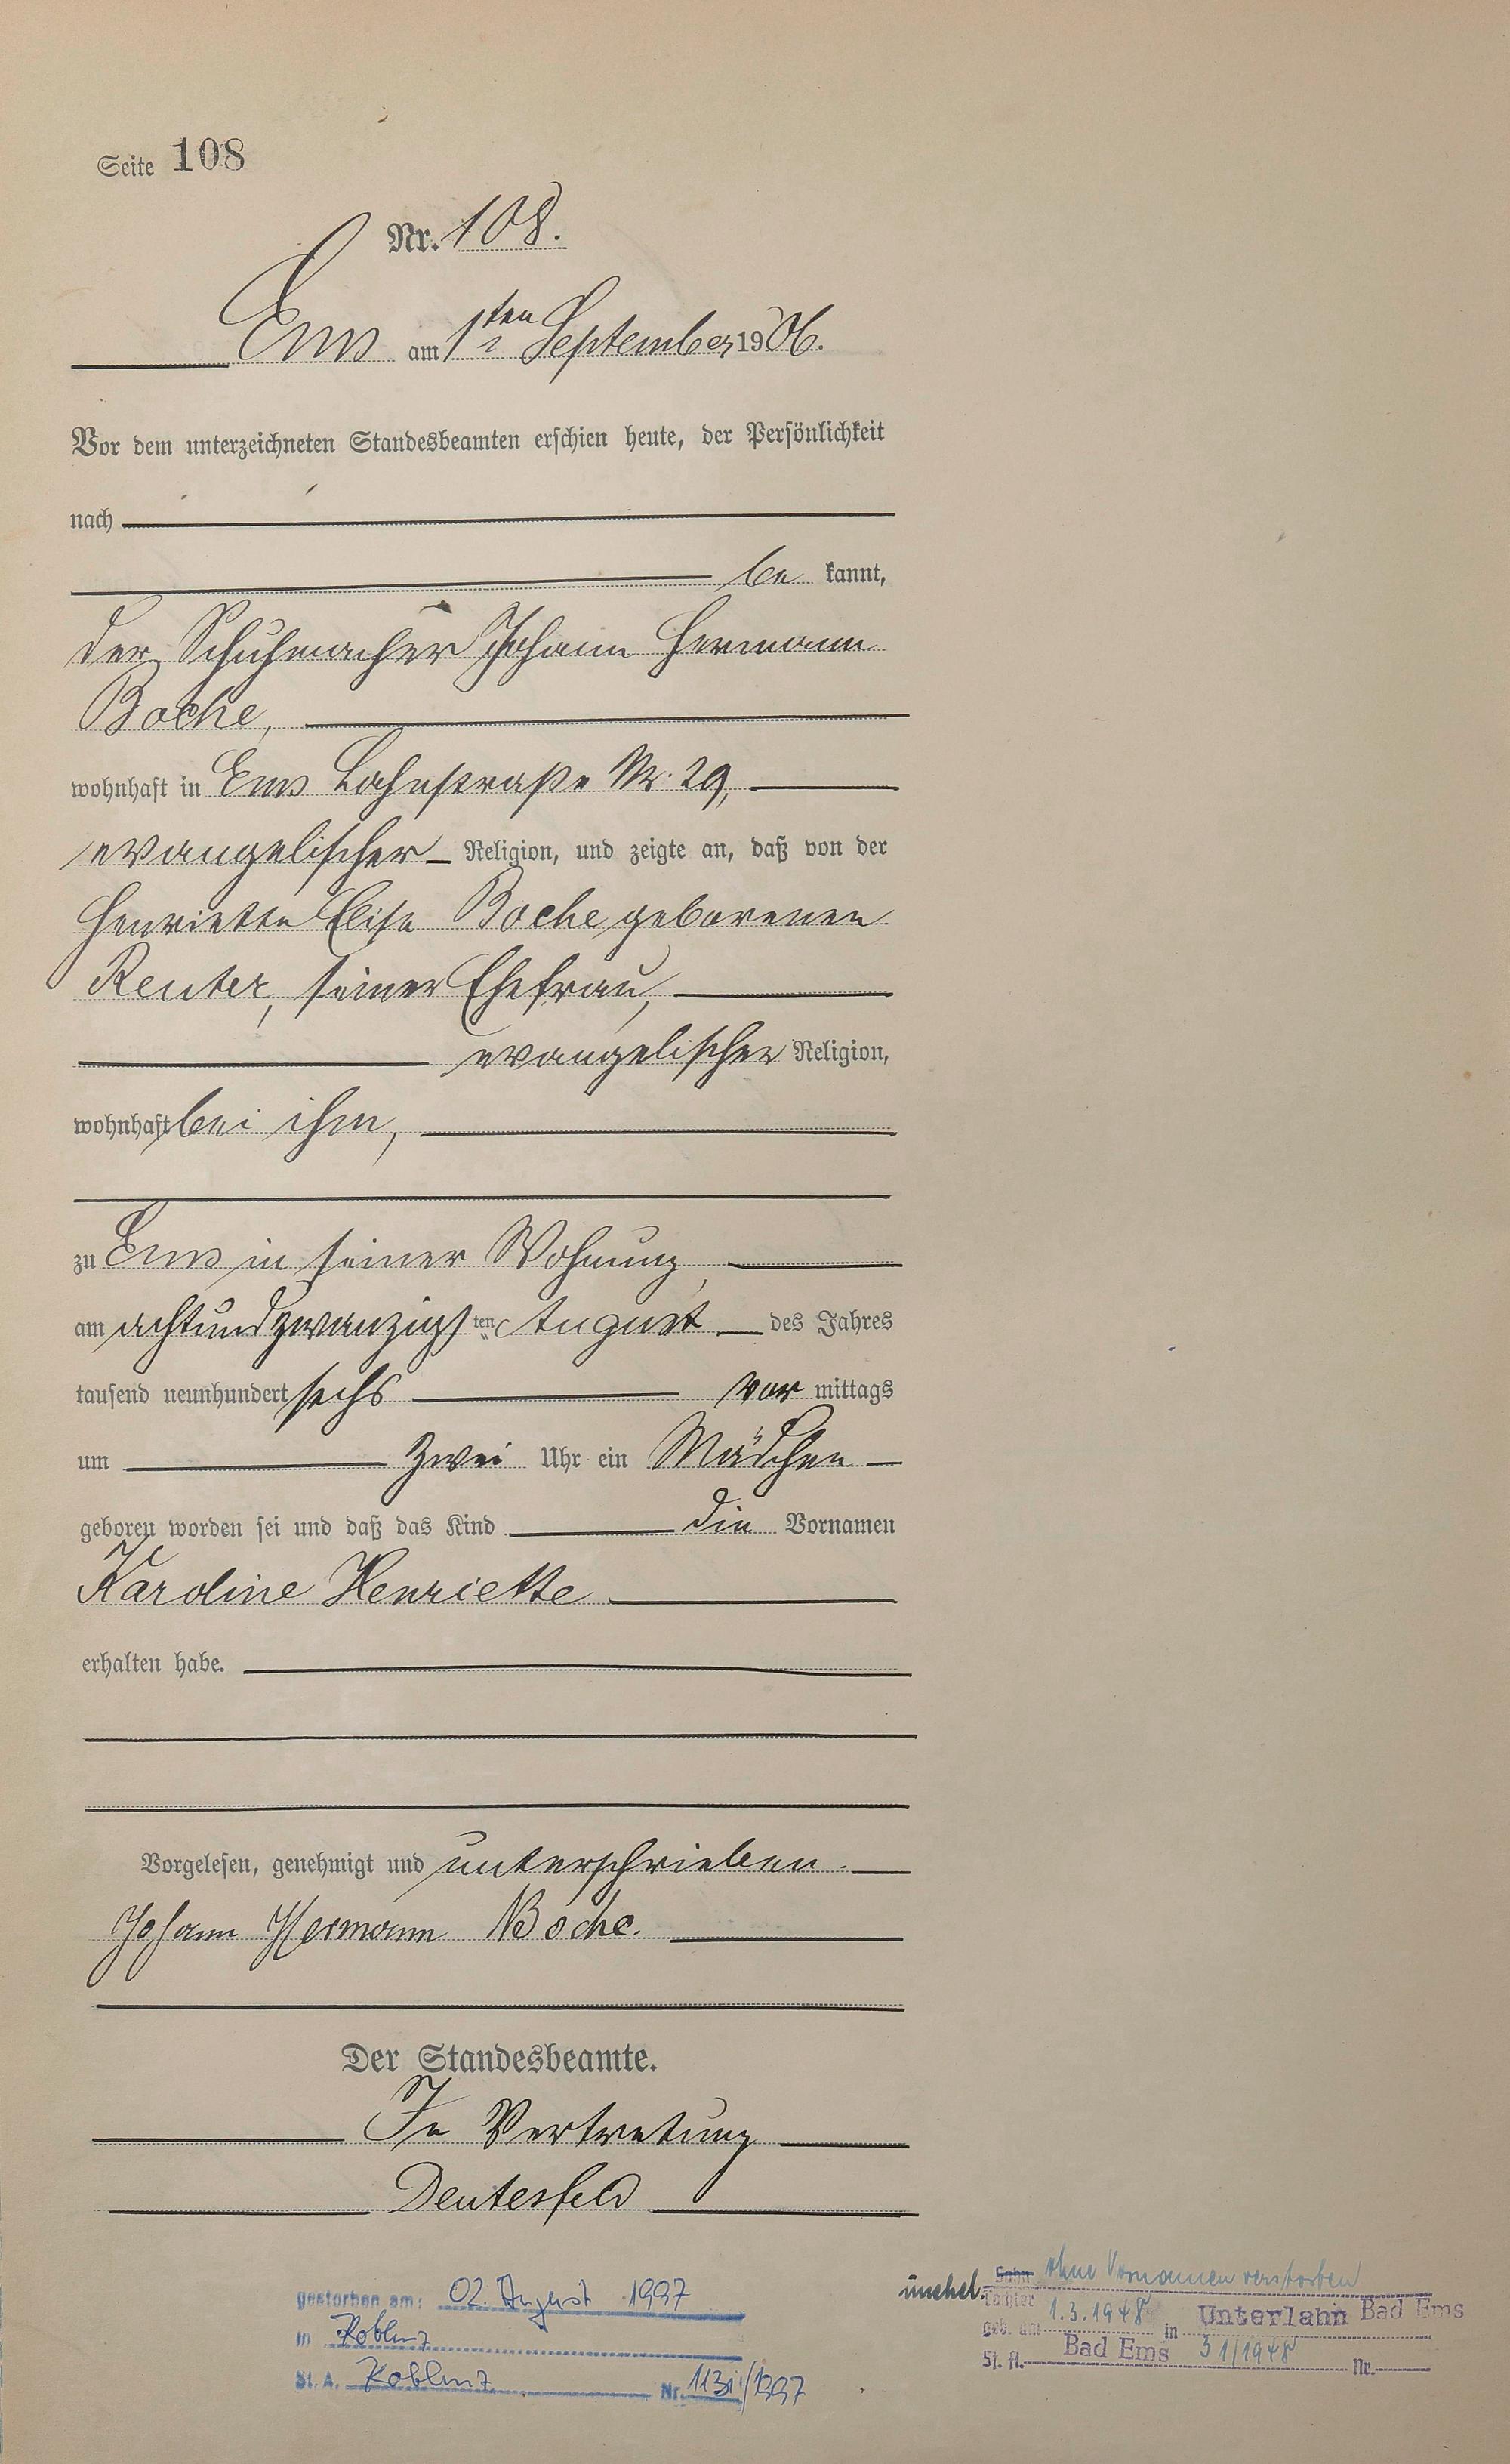 Seite 108
Nr. 108.
Ems am 1ten September 1906.
Vor dem unterzeichneten Standesbeamten erschien heute, der Persönlichkeit
nach
be kannt,
der Schuhmacher Johann Hermann
Boche,
wohnhaft in Ems Lahnstraße Nr. 29,
evangelischer Religion, und zeigte an, daß von der
Henriette Elise Boche geborenen
Reuter, seiner Ehefrau,
evangelischer Religion,
wohnhaft bei ihm,
zu Ems in seiner Wohnung,
am achtundzwanzigsten August des Jahres
tausend neunhundert sechs vor mittags
um zwei Uhr ein Mädchen
geboren worden sei und daß das Kind die Vornamen
Karoline Henriette
erhalten habe.
Vorgelesen, genehmigt und unterschrieben.
Johann Hermann Boche.
Der Standesbeamte.
In Vertretung
Deutesfeld
gestorben am: 02. August 1997
in Koblenz
St. A. Koblenz Nr. /1997
unehel. Sohn ohne Vornamen verstorben
Tochter
geb. am 1.3.1948 in Unterlahn Bad Ems
St. A. Bad Ems 31/1948 Nr.